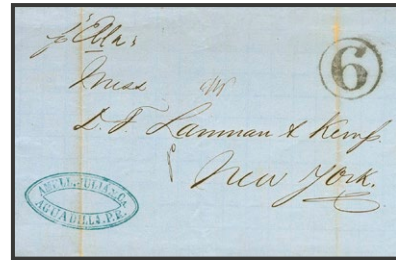 pr Ella
6
Mess
D. T. Lanman & Kemp.
New York.
AMELL, JULIA & Co.
AGUADILLA. P.R.